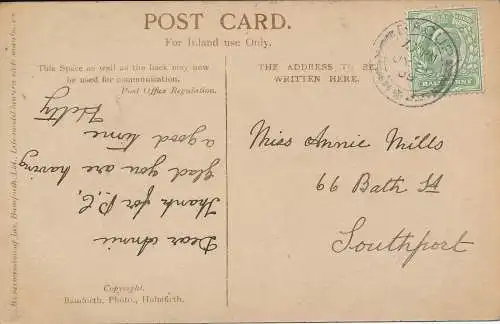 POST CARD.
For Inland use Only.
This Space as well as the back may now
be used for communication.
Post Office Regulation.
THE ADDRESS TO BE
WRITTEN HERE.
Dear Annie
Thank for P.C.
glad you are having
a good time
Hetty
Miss Annie Mills
66 Bath St
Southport
Copyright.
Bamforth, Photo., Holmfirth.